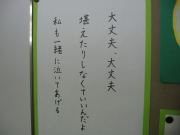 大丈夫、大丈夫
堪えたりしなくていいんだよ
私も一緒に泣いてあげる